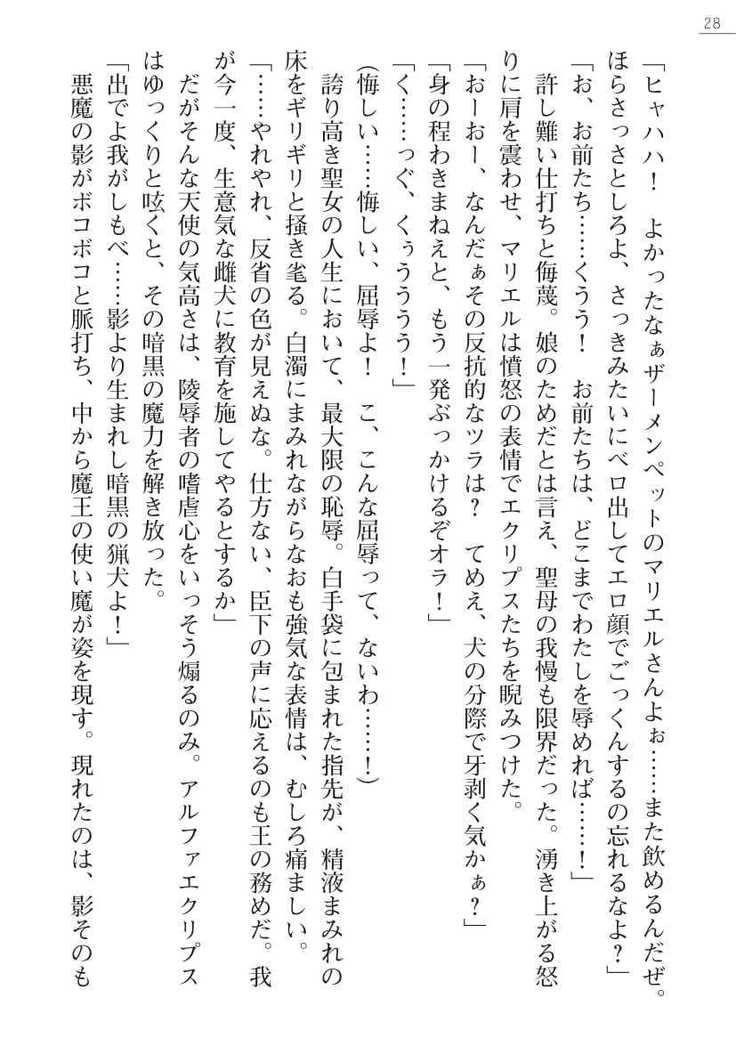 28
「ヒャハハ！　よかったなぁザーメンペットのマリエルさんよぉ……また飲めるんだぜ。
ほらさっさとしろよ、さっきみたいにベロ出してエロ顔でごっくんするの忘れるなよ？」
「お、お前たち……くうう！　お前たちは、どこまでわたしを辱めれば……！」
　許し難い仕打ちと侮蔑。娘のためだとは言え、聖母の我慢も限界だった。湧き上がる怒
りに肩を震わせ、マリエルは憤怒の表情でエクリプスたちを睨みつけた。
「おーおー、なんだぁその反抗的なツラは？　てめえ、犬の分際で牙剥く気かぁ？」
「身の程わきまねえと、もう一発ぶっかけるぞオラ！」
「く……っぐ、くぅうううう！」
（悔しい……悔しい、屈辱よ！　こ、こんな屈辱って、ないわ……！）
　誇り高き聖女の人生において、最大限の恥辱。白手袋に包まれた指先が、精液まみれの
床をギリギリと掻き毟る。白濁にまみれながらなおも強気な表情は、むしろ痛ましい。
「……やれやれ、反省の色が見えぬな。仕方ない、臣下の声に応えるのも王の務めだ。我
が今一度、生意気な雌犬に教育を施してやるとするか」
　だがそんな天使の気高さは、陵辱者の嗜虐心をいっそう煽るのみ。アルファエクリプス
はゆっくりと呟くと、その暗黒の魔力を解き放った。
「出でよ我がしもべ……影より生まれし暗黒の猟犬よ！」
　悪魔の影がボコボコと脈打ち、中から魔王の使い魔が姿を現す。現れたのは、影そのも